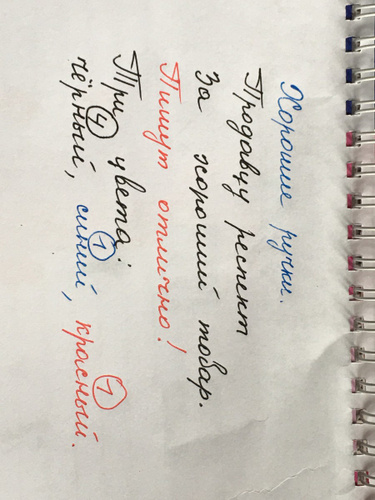 Хорошие ручки.
Продавцу респект
За хороший товар.
Пишут отлично!
Три цвета:
4 1 1
чёрный, синий, красный.